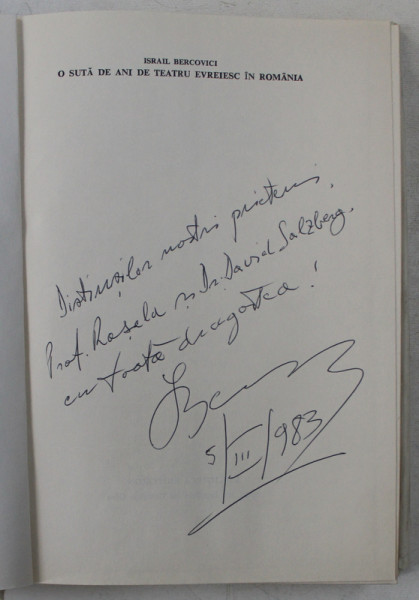 ISRAIL BERCOVICI
O SUTĂ DE ANI DE TEATRU EVREIESC ÎN ROMÂNIA
Distinșilor noștri prieteni,
Prof. Rașela și Dr. David Salzberg,
cu toată dragostea!
5/III/1983